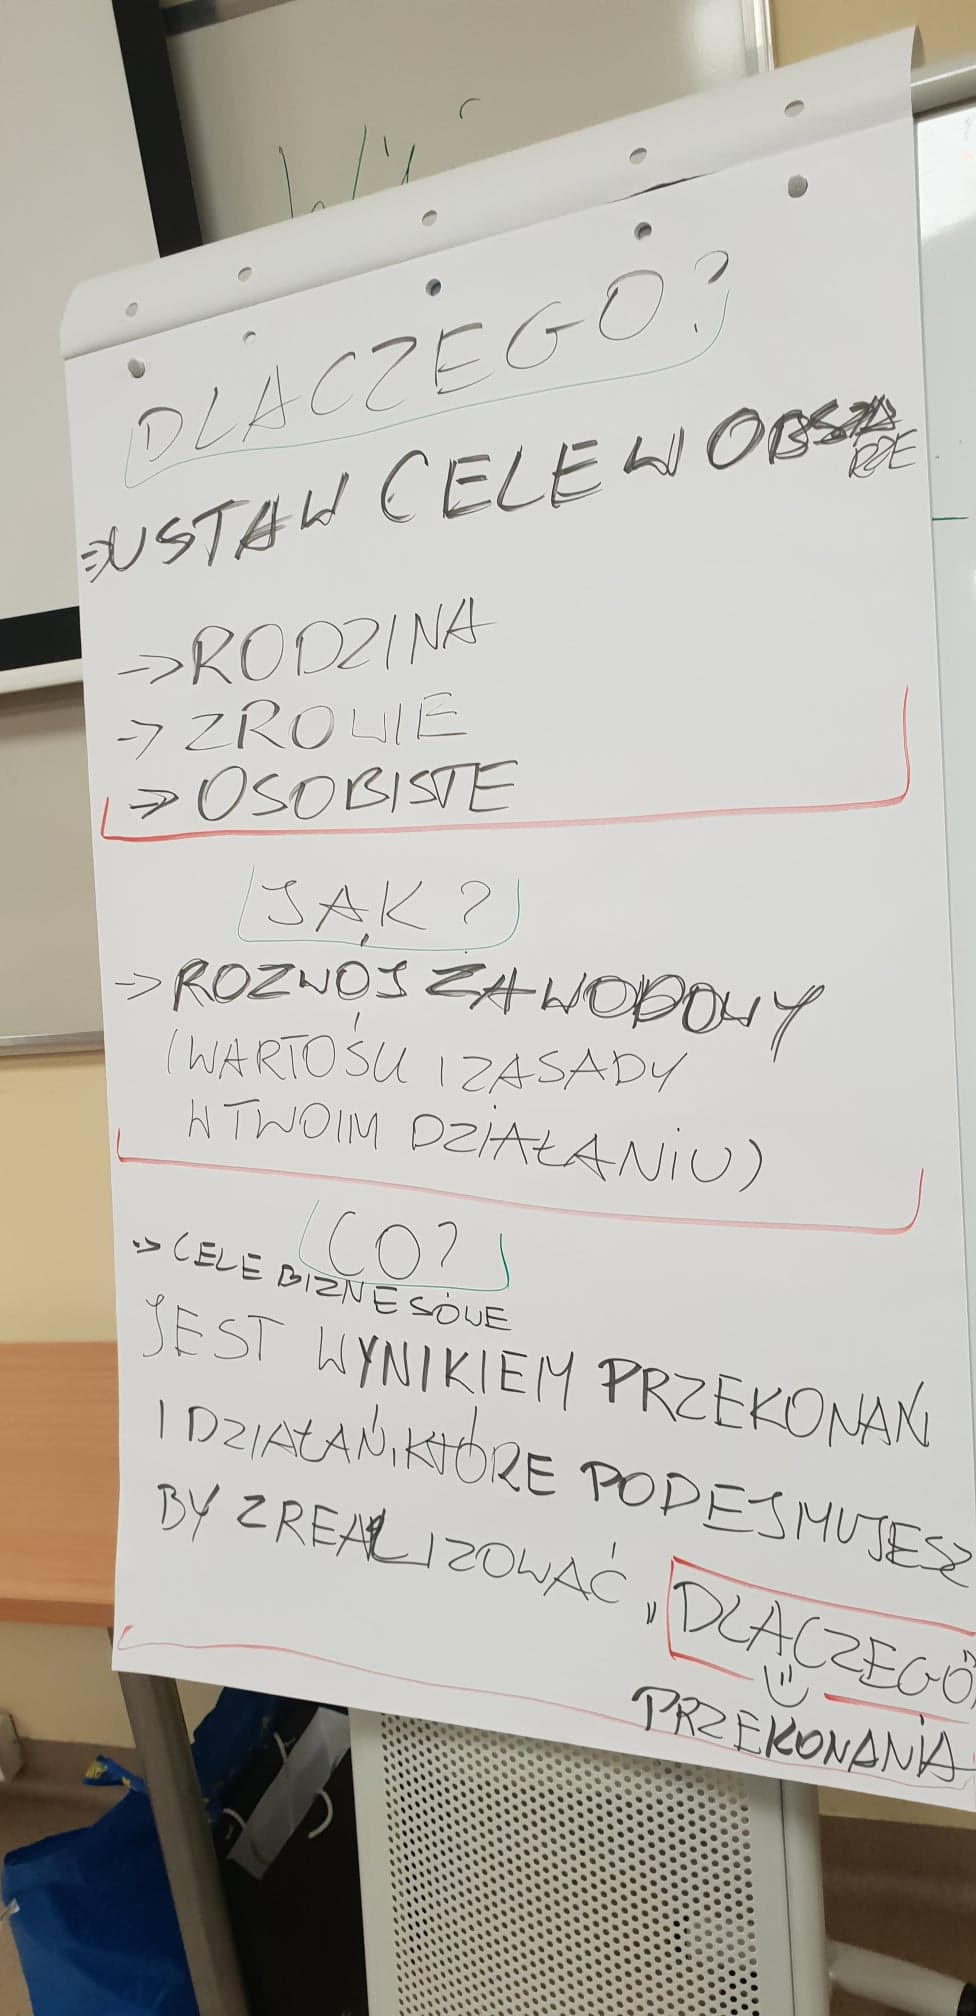 DLACZEGO?
⇒ USTAW CELE W OBSZARZE
→ RODZINA
→ ZROWIE
⇒ OSOBISTE
JAK?
→ ROZWÓJ ZAWODOWY
(WARTOŚCI I ZASADY
W TWOIM DZIAŁANIU)
CO?
→ CELE BIZNESOWE
JEST WYNIKIEM PRZEKONAŃ
I DZIAŁAŃ, KTÓRE PODEJMUJESZ
BY ZREALIZOWAĆ „DLACZEGO"
PRZEKONANIA